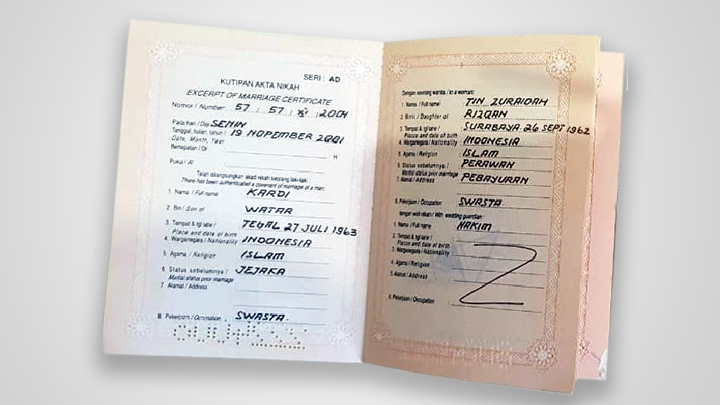 SERI : AD
KUTIPAN AKTA NIKAH
EXCERPT OF MARRIAGE CERTIFICATE
Nomor / Number 57 / 57 / XI / 2001
Pada hari / Day SENIN
Tanggal, bulan, tahun / 19 NOPEMBER 2001
Date, Month, Year
Bertepatan / Or H.
Pukul / At
Telah dilangsungkan akad nikah seorang laki-laki
There has been authenticated a covenant of marriage of a man:
1. Nama / Full name KARDI
2. Bin / Son of WATAR
3. Tempat & tgl lahir / TEGAL 27 JULI 1963
Place and date of birth
4. Warganegara / Nationality INDONESIA
5. Agama / Religion ISLAM
6. Status sebelumnya / JEJAKA
Marital status prior marriage
7. Alamat / Address
8. Pekerjaan / Occupation SWASTA
Dengan seorang wanita / to a woman:
1. Nama / Full name TIN ZURAIDAH
2. Binti / Daughter of RIZQAN
3. Tempat & tgl lahir / SURABAYA 26 SEPT 1962
Place and date of birth
4. Warganegara / Nationality INDONESIA
5. Agama / Religion ISLAM
6. Status sebelumnya / PERAWAN
Marital status prior marriage
7. Alamat / Address PEBAYURAN
8. Pekerjaan / Occupation SWASTA
dengan wali nikah / With wedding guardian :
1. Nama / Full name HAKIM
2. Tempat & tgl lahir /
Place and date of birth
3. Warganegara / Nationality
4. Agama / Religion
5. Alamat / Address
6. Pekerjaan / Occupation